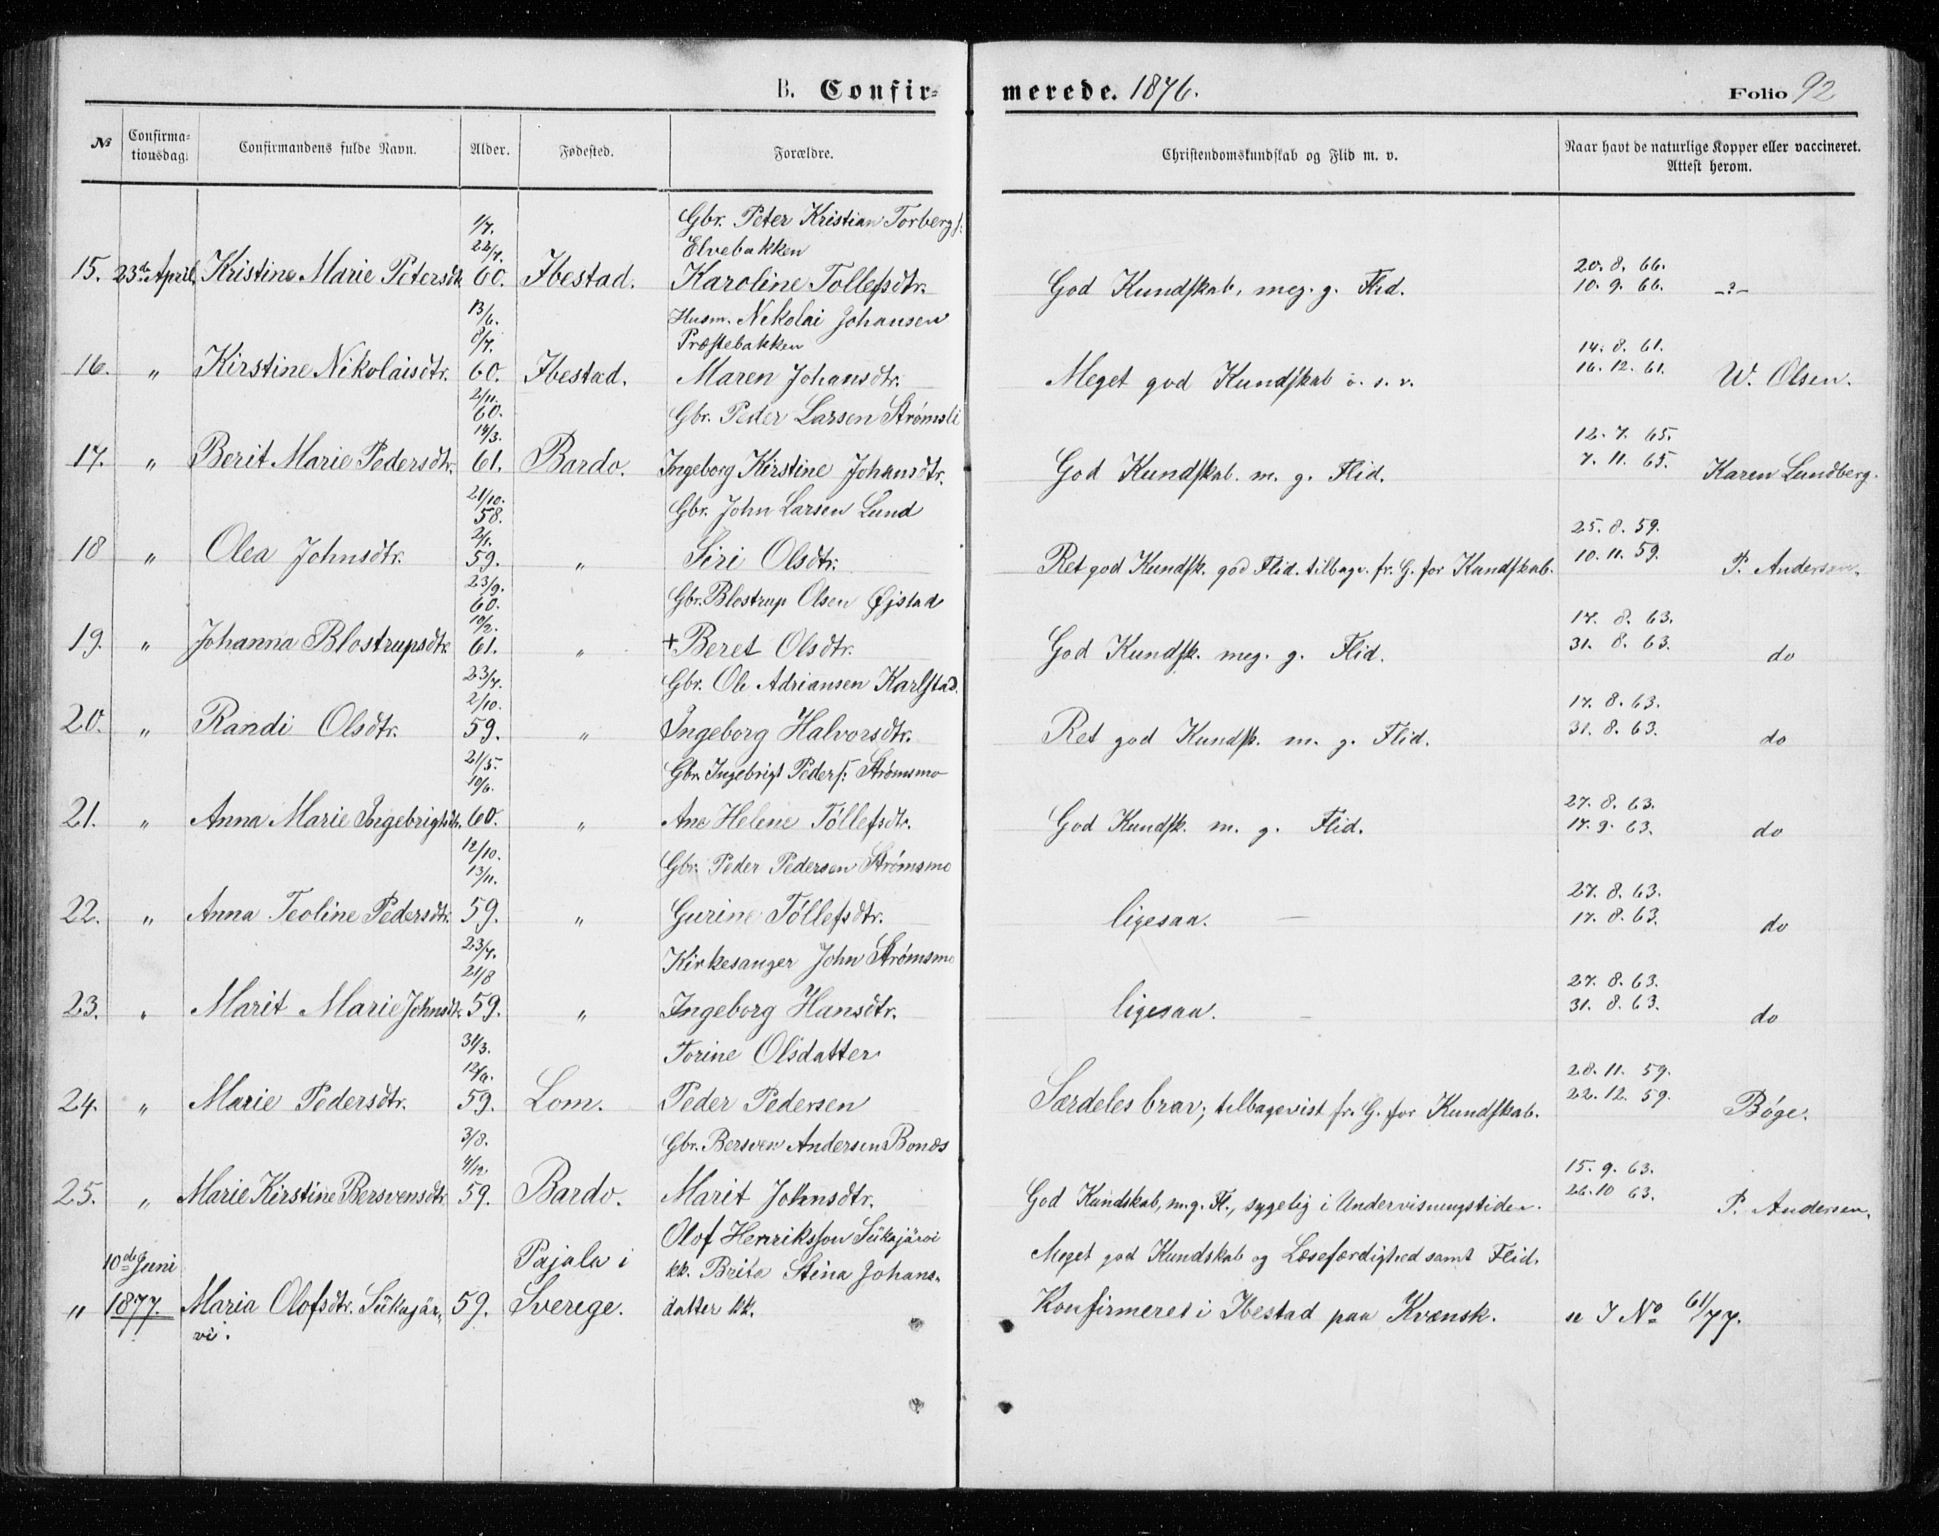 B. Confirmerede. 1876. Folio 92
№ Confirmationsdag. Confirmandens fulde Navn. Alder. Fødested. Forældre. Christendomskundskab og Flid m. v. Naar havt de naturlige Kopper eller vaccineret. Attest herom.
1/7. Gbr. Peter Kristian Torbergs:
22/7. Elvebakken
15. 23de April. Kristine Marie Petersdtr. 60. Ibestad. Karoline Tollefsdtr. God Kundskab, meg. g. Flid. 20. 8. 66. 10. 9. 66. -?-
13/6. Husm. Nikolai Johansen
8/7. Præstebakken
16. " Kirstine Nikolaisdtr. 60. Ibestad. Maren Johansdtr. Meget god Kundskab o. s. v. 14. 8. 61. 16. 12. 61. W. Olsen.
2/11. 60. Gbr. Peder Larsen Strømsli
14/3.
17. " Berit Marie Pedersdtr. 61. Bardo. Ingeborg Kirstine Johansdtr. God Kundskab. m. g. Flid. 12. 7. 65. 7. 11. 65. Karen Lundberg.
21/10. 58. Gbr. John Larsen Lund
2/1.
18 " Olea Johnsdtr. 59. " Siri Olsdtr. Ret god Kundsk. god Flid. tilbagev. fr. G. for Kundskab. 25. 8. 59. 10. 11. 59. P. Andersen.
23/9. 60. Gbr. Blostrup Olsen Øjstad
10/2.
19. " Johanna Blostrupsdtr. 61. " + Beret Olsdtr. God Kundsk. meg. g. Flid. 17. 8. 63. 31. 8. 63. do
23/7. Gbr. Ole Adriansen Karlstad.
2/10.
20. " Randi Olsdtr. 59. " Ingeborg Halvorsdtr. Ret god Kundsk. m. g. Flid. 17. 8. 63. 31. 8. 63. do
21/5. Gbr. Ingebrigt Peders: Strømsmo
10/6.
21. " Anna Marie Ingebrigtsdtr. 60. " Ane Helene Tøllefsdtr. God Kundsk. m. g. Flid. 27. 8. 63. 17. 9. 63. do
12/10. Gbr. Peder Pedersen Strømsmo
13/11.
22. " Anna Teoline Pedersdtr. 59. " Gurine Tøllefsdtr. ligesaa. 27. 8. 63. 17. 8. 63. do
23/7. Kirkesanger John Strømsmo
21/8
23. " Marit Marie Johnsdtr. 59. " Ingeborg Hansdtr. ligesaa. 27. 8. 63. 31. 8. 63. do
31/3. Torine Olsdatter
12/6.
24. " Marie Pedersdtr. 59. Lom. Peder Pedersen Særdeles brav; tilbagevist fr. G. for Kundskab. 28. 11. 59. 22. 12. 59. Bøge.
3/8. Gbr. Bersven Andersen Bonæs
4/12.
25. " Marie Kirstine Bersvensdtr. 59. Bardo. Marit Johnsdtr. God Kundskab, m. g. Fl., sygelig i Undervisningstiden. 15. 9. 63. 26. 10 63. P. Andersen.
Olof Henriksson Siikajärvi
10de Juni Pajala i kk. Brita Stina Johans- Meget god Kundskab og Læsefærdighed samt Flid.
" 1877. Maria Olofsdtr. Siikajär- 59. Sverige. datter kk. Konfirmeret i Ibestad paa Kvænsk. se J No 61/77.
vi.